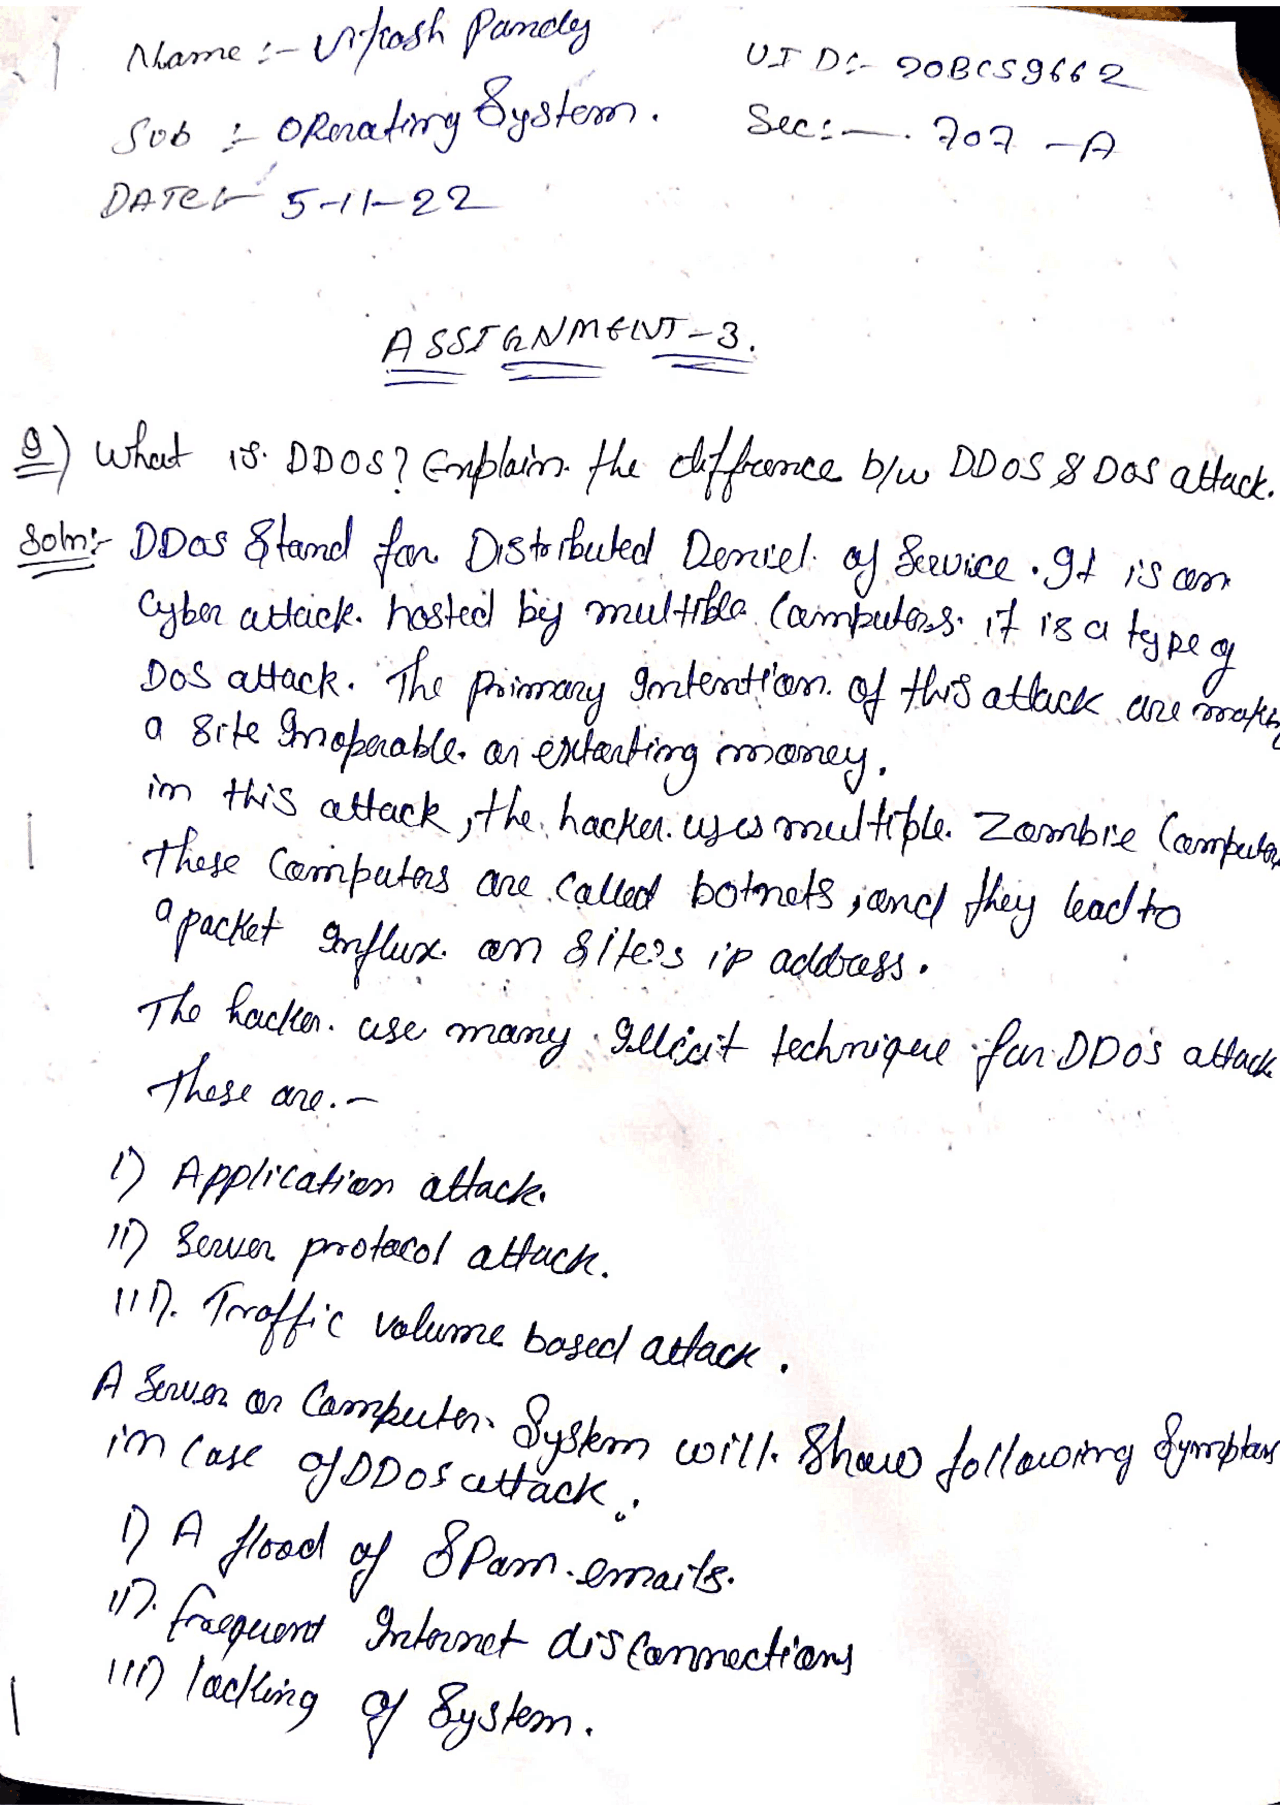 Name :- Vikash Pandey
UID:- 20BCS9662
Sub :- Operating System.
Sec:- 707 -A
DATE:- 5-11-22
ASSIGNMENT-3.
Q) What is DDOS? Explain the diffrence b/w DDOS & DOS attack.
Soln:- DDOS Stand for Distributed Deniel of Service. It is an
Cyber attack hosted by multible Computers. it is a type of
DOS attack. The primary Intention of this attack are making
a site Inoperable or extorting money.
in this attack, the hacker uses multiple Zombie Computers
These Computers are called botnets, and they lead to
a packet Influx on site's ip address.
The hacker use many Illicit technique for DDOS attack
These are.-
i) Application attack.
ii) Server protocol attack.
iii). Traffic volume based attack.
A Server or Computer System will show following Symptoms
in case of DDOS attack.
i) A flood of Spam emails.
ii). frequent Internet disconnections
iii) lacking of System.